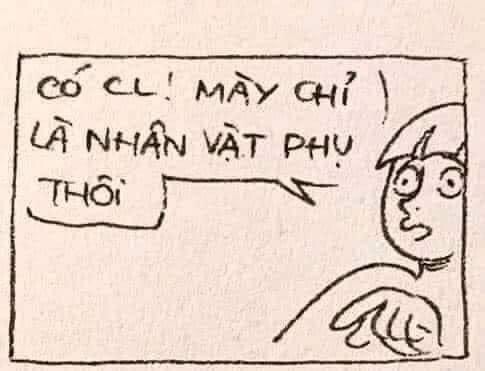 CÓ CL! MÀY CHỈ
LÀ NHÂN VẬT PHỤ
THÔI